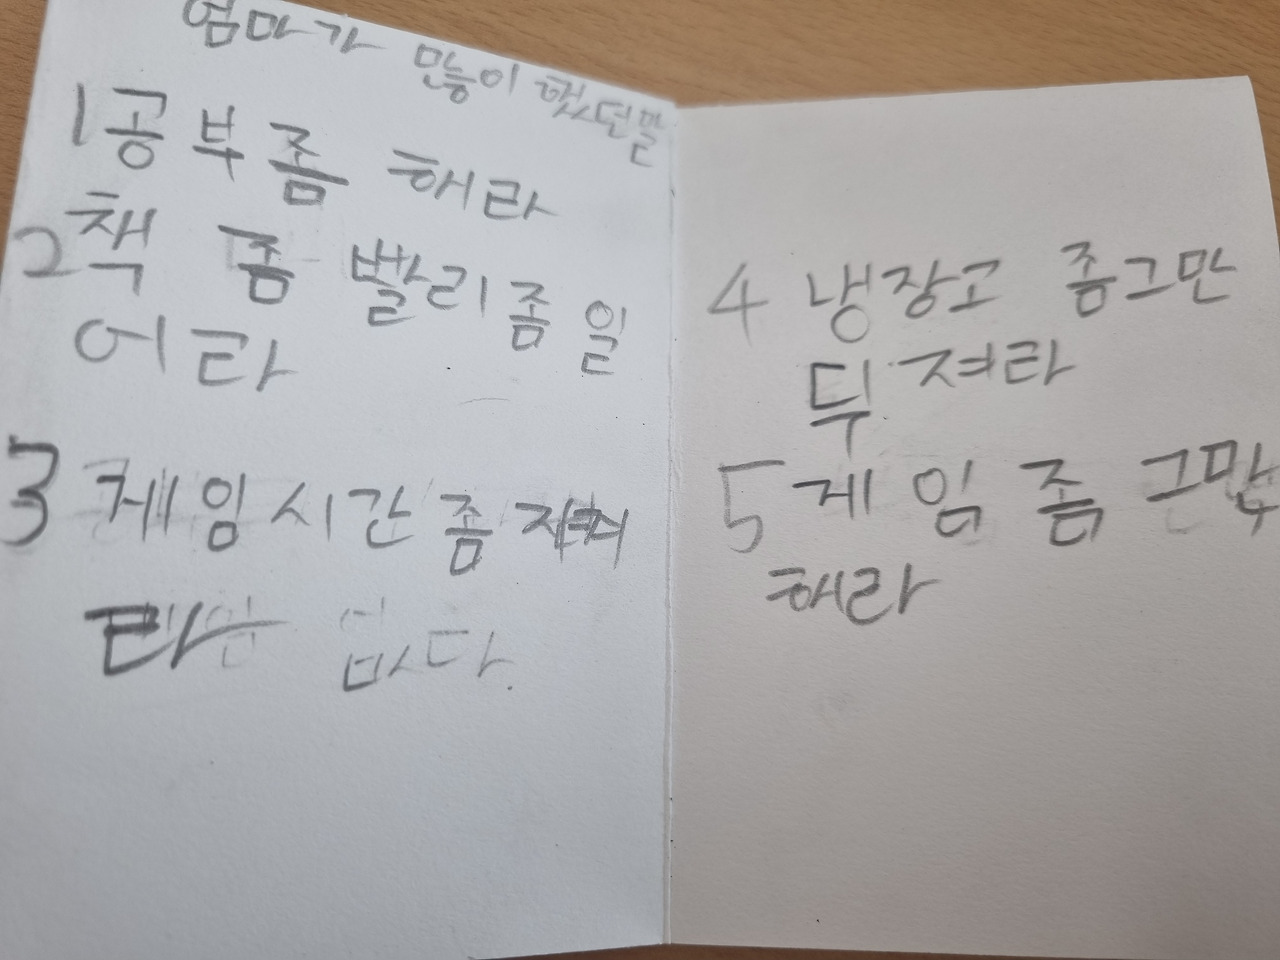 엄마가 많이 했던말
1 공부좀 해라
2 책 좀 빨리좀 일
어라
3 게임시간좀
라
없다.
4 냉장고 좀그만
뒤져라
5 게임 좀 그만
해라